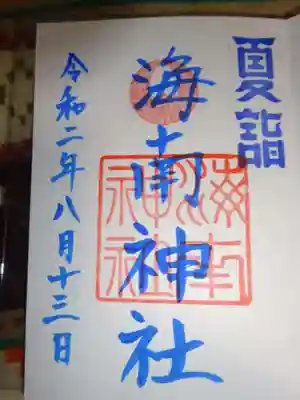 夏詣
海南神社
海南神社
令和二年八月十三日